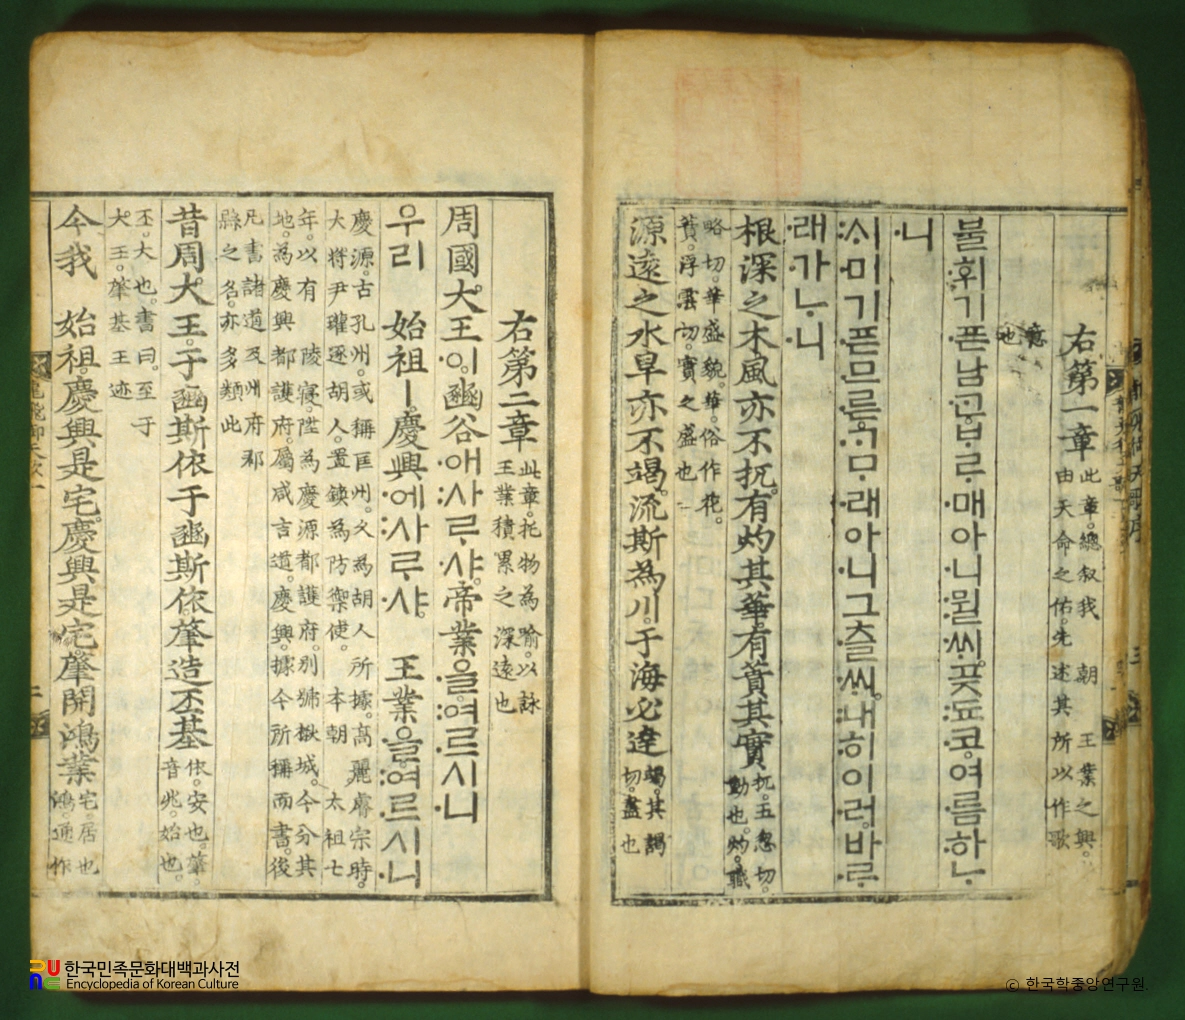 右第一章
此章。總叙我 朝 王業之興。
由天命之佑。先述其所以作歌
意
也
불휘기픈남ᄀᆞᆫᄇᆞᄅᆞ매아니뮐ᄊᆡ。곶됴코。여름하ᄂᆞ
니
ᄉᆡ미기픈므른ᄀᆞᄆᆞ래아니그츨ᄊᆡ。내히이러。바ᄅᆞ
래가ᄂᆞ니
根深之木風亦不扤。有灼其華。有蕡其實
扤。五忽切。
動也。灼。職
略切。華盛貌。華。俗作花。
蕡。浮雲切。實之盛也
源遠之水旱亦不竭。流斯為川。于海必達
竭。其謁
切。盡也
右第二章
此章。托物為喻。以詠
王業積累之深遠也
周國大王이。豳谷애사ᄅᆞ샤。帝業을。여르시니
우리 始祖ㅣ。慶興에사ᄅᆞ샤。 王業을。여르시니
慶源。古孔州。或稱匡州。久為胡人所據。高麗睿宗時。
大將尹瓘逐胡人。置鎭為防禦使。 本朝 太祖七
年。以有 陵寢。陞為慶源都護府。別號楸城。今分其
地。為慶興 都護府。屬咸吉道。慶興。據今所稱而書。後
凡書諸道及州府郡
縣之名。亦多類此
昔周大王。于豳斯依于豳斯依肇造丕基
依。安也。肇。
音兆。始也。
丕。大也。書曰。至于
大王。肇基王迹
今我 始祖。慶興是宅。慶興是宅。肇開鴻業
宅。居也
鴻。通作
한국민족문화대백과사전
Encyclopedia of Korean Culture
ⓒ 한국학중앙연구원.